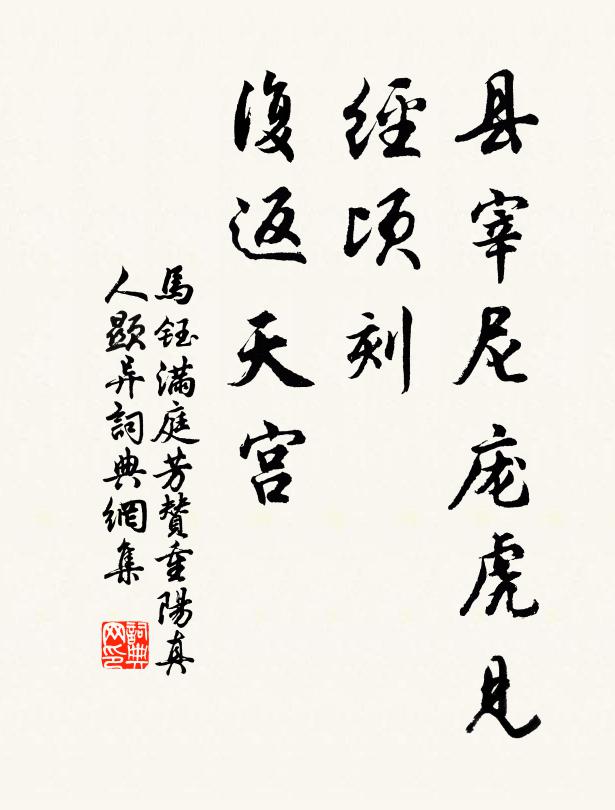 县宰尼庞虎见
經頃刻
復返天宫
馬鈺滿庭芳贊重陽真
人顯异詞典網集
詞典
网印